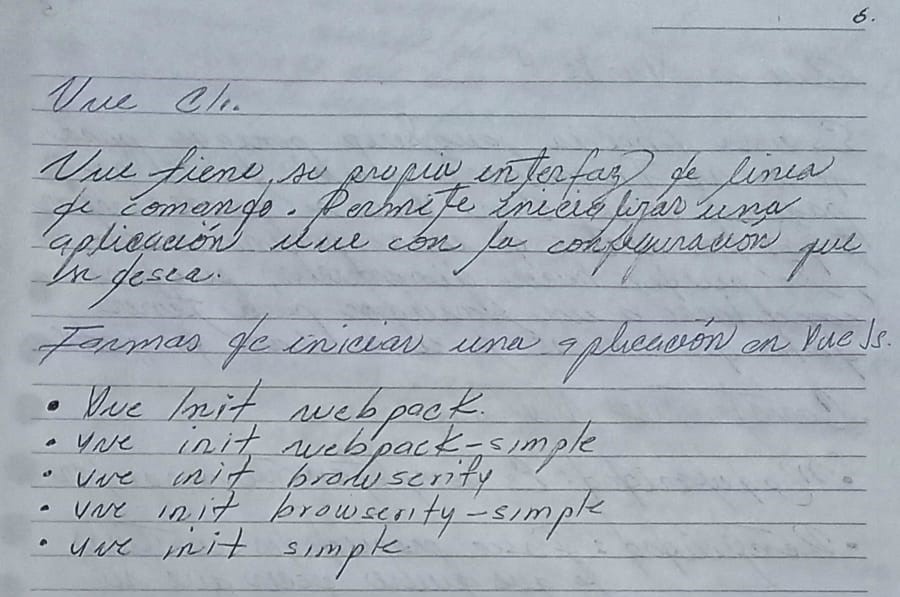 6.
Vue Cli.
Vue tiene su propia interfaz de linea
de comando. Permite inicializar una
aplicación vue con la configuración que
se desea.
Formas de iniciar una aplicación en Vue Js.
• Vue Init webpack.
• vue init webpack-simple
• vue init browserify
• vue init browserity-simple
• vue init simple.